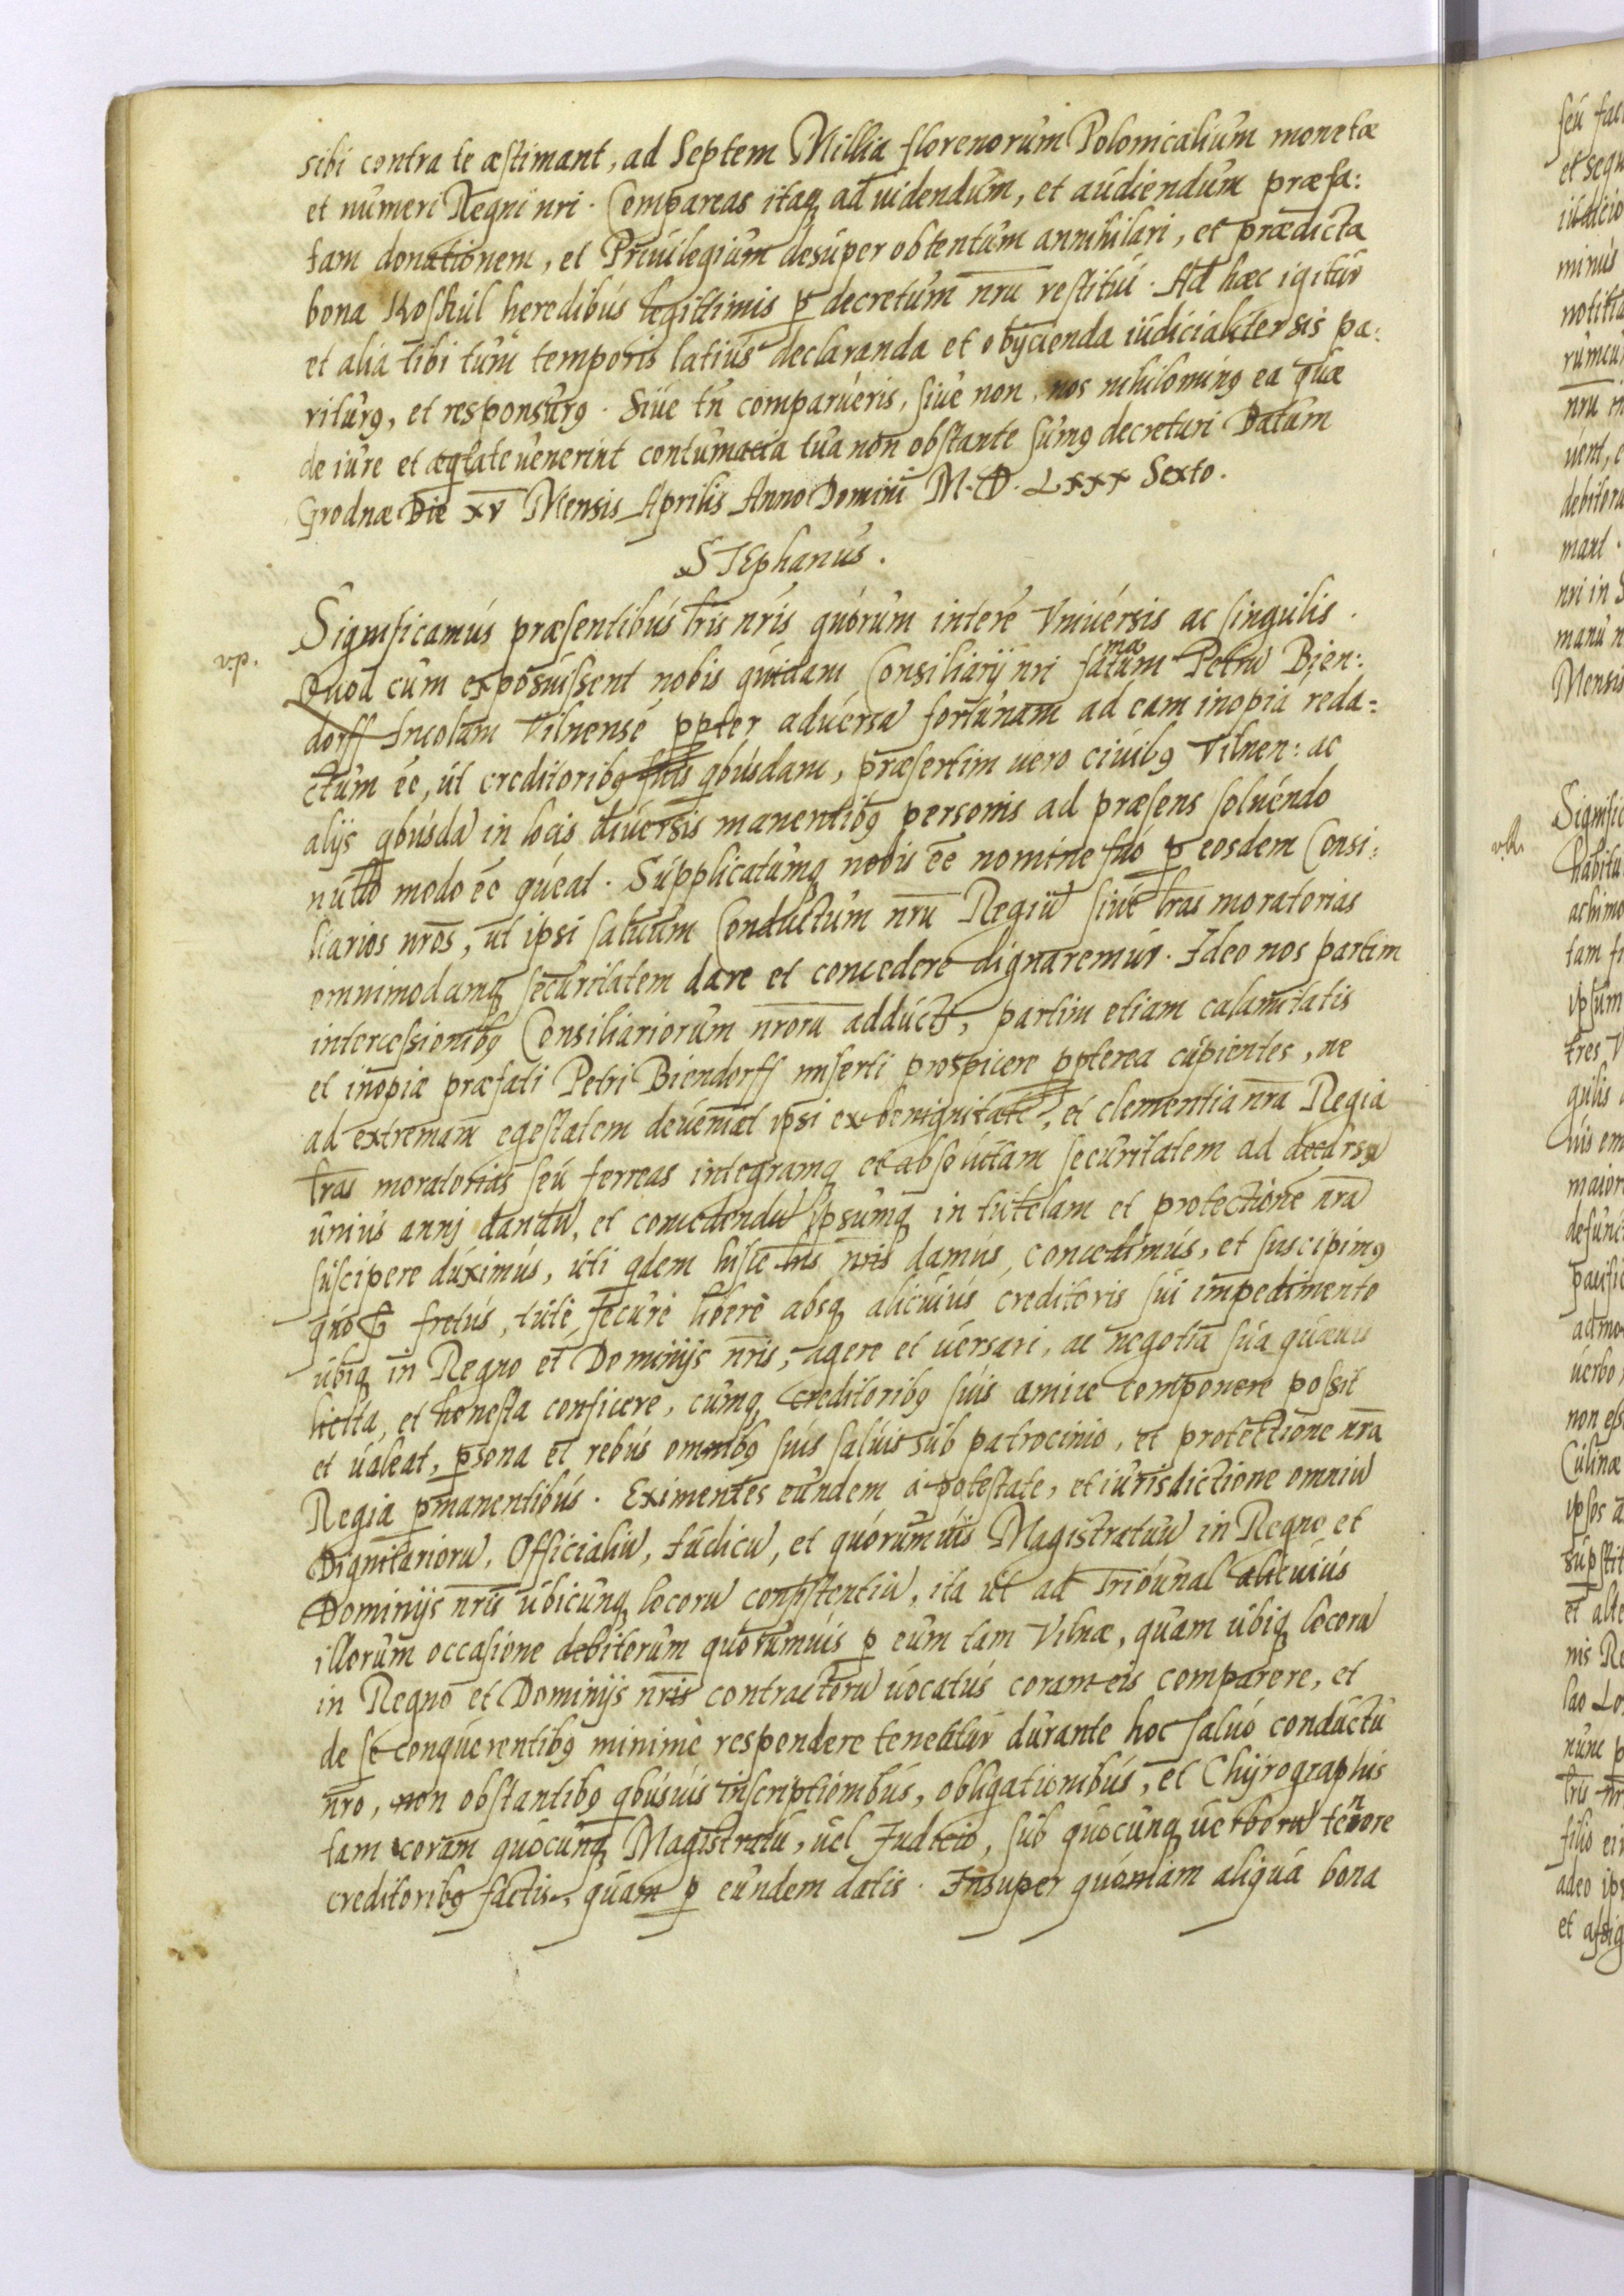 sibi contra te æstimant, ad Septem Millia florenorum Polonicalium monetæ
et numeri Regni nri. Compareas itaq ad uidendum, et audiendum præfa:
tam donationem, et Priuilegium desuper obtentum annihilari, et prædicta
bona Koskul heredibus legittimis p decretum nru restitui. Ad hæc igitur
et alia tibi tum temporis latius declaranda et obycienda iudicialiter sis pa:
riturq, et responsurq. Siue tn comparueris, siue non, nos nihilominq ea quæ
de iure et æqtate uenerint contumatia tua non obstante sumq decreturi Datum
Grodnæ Die XV Mensis Aprilis Anno Domini M.D.LXXX Sexto.
STEphanus.
Significamus præsentibus lris nris quorum intere Vniuersis ac singulis.
Quod cum exposuissent nobis quidam Consiliarij nri famatum Petru Bien:
dorff Incolam Vilnense ppter aduersa fortunam ad eam inopia reda=
ctum ee, ut creditoribq suis qbusdam, præsertim uero ciuibq Vilnen: ac
alijs qbusda in locis diuersis manentibq personis ad præsens soluendo
nullo modo ee queat. Supplicatumq nobis ee nomine suo p eosdem Consi:
liarios nros, ut ipsi saluum Conductum nru Regiu siue lras moratorias
omnimodamq securitatem dare et concedere dignaremur. Ideo nos partim
intercessionibq Consiliariorum nroru adducti, partim etiam calamitatis
et inopiæ præfati Petri Biendorff miserti prospicere ppterea cupientes, ne
ad extremam egestatem deueniat ipsi ex benignitate, et clementia nra Regia
lras moratorias seu ferreas integramq et absolutam securitatem ad decursu
unius annj dandu, et concedendu Ipsumq in tutelam et protectione nra
suscipere duximus, uti qdem hisce lris nris damus, concedimus, et suscipimq
quo fretus, tute, secure libere absq alicuius creditoris sui impedimento
ubiq in Regno et Dominijs nris, agere et uersari, ac negotia sua quæuis
licita, et honesta conficere, cumq creditoribq suis amice componere possit
et ualeat, psona et rebus omnibq suis saluis sub patrocinio, et protectione nra
Regia pmanentibus. Eximentes eundem a potestate, et iurisdictione omniu
Dignitarioru, Officialiu, Iudicu, et quorumuis Magistratuu in Regno et
Dominijs nris ubicunq locoru consistentiu, ita ut ad Tribunal alicuius
illorum occasione debitorum quorumuis p eum tam Vilnæ, quam ubiq locoru
in Regno et Dominijs nris contractoru uocatus coram eis comparere, et
de se conquerentibq minime respondere teneatur durante hoc saluo conductu
nro, non obstantibq qbusuis inscriptionibus, obligationibus, et Chyrographis
tam coram quocunq Magistratu, uel Iudicio, sub quocunq uerboru tenore
creditoribq factis, quam p eundem datis. Insuper quoniam aliqua bona